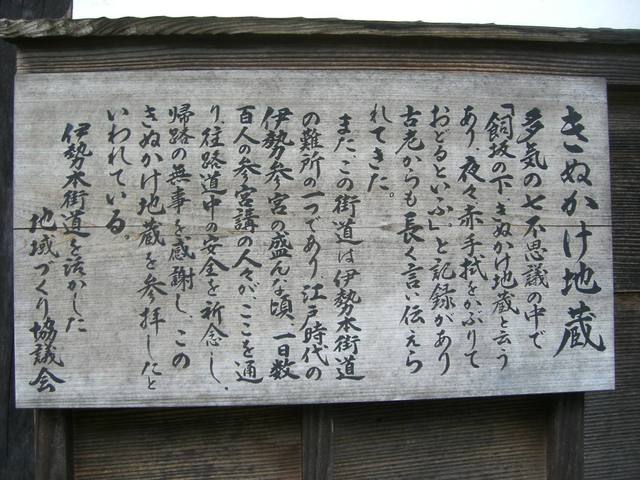 きぬかけ地蔵
多気の七不思議の中で
「飼坂の下、きぬかけ地蔵と云う
あり、夜々赤手拭をかぶりて
おどるといふ」と記録があり
古老からも長く言い伝えら
れてきた。
また、この街道は伊勢本街道
の難所の一つであり、江戸時代の
伊勢参宮の盛んな頃、一日数
百人の参宮講の人々が、ここを通
り、往路道中の安全を祈念し、
帰路の無事を感謝し、この
きぬかけ地蔵を参拝したと
いわれている。
伊勢本街道を活かした
地域づくり協議会